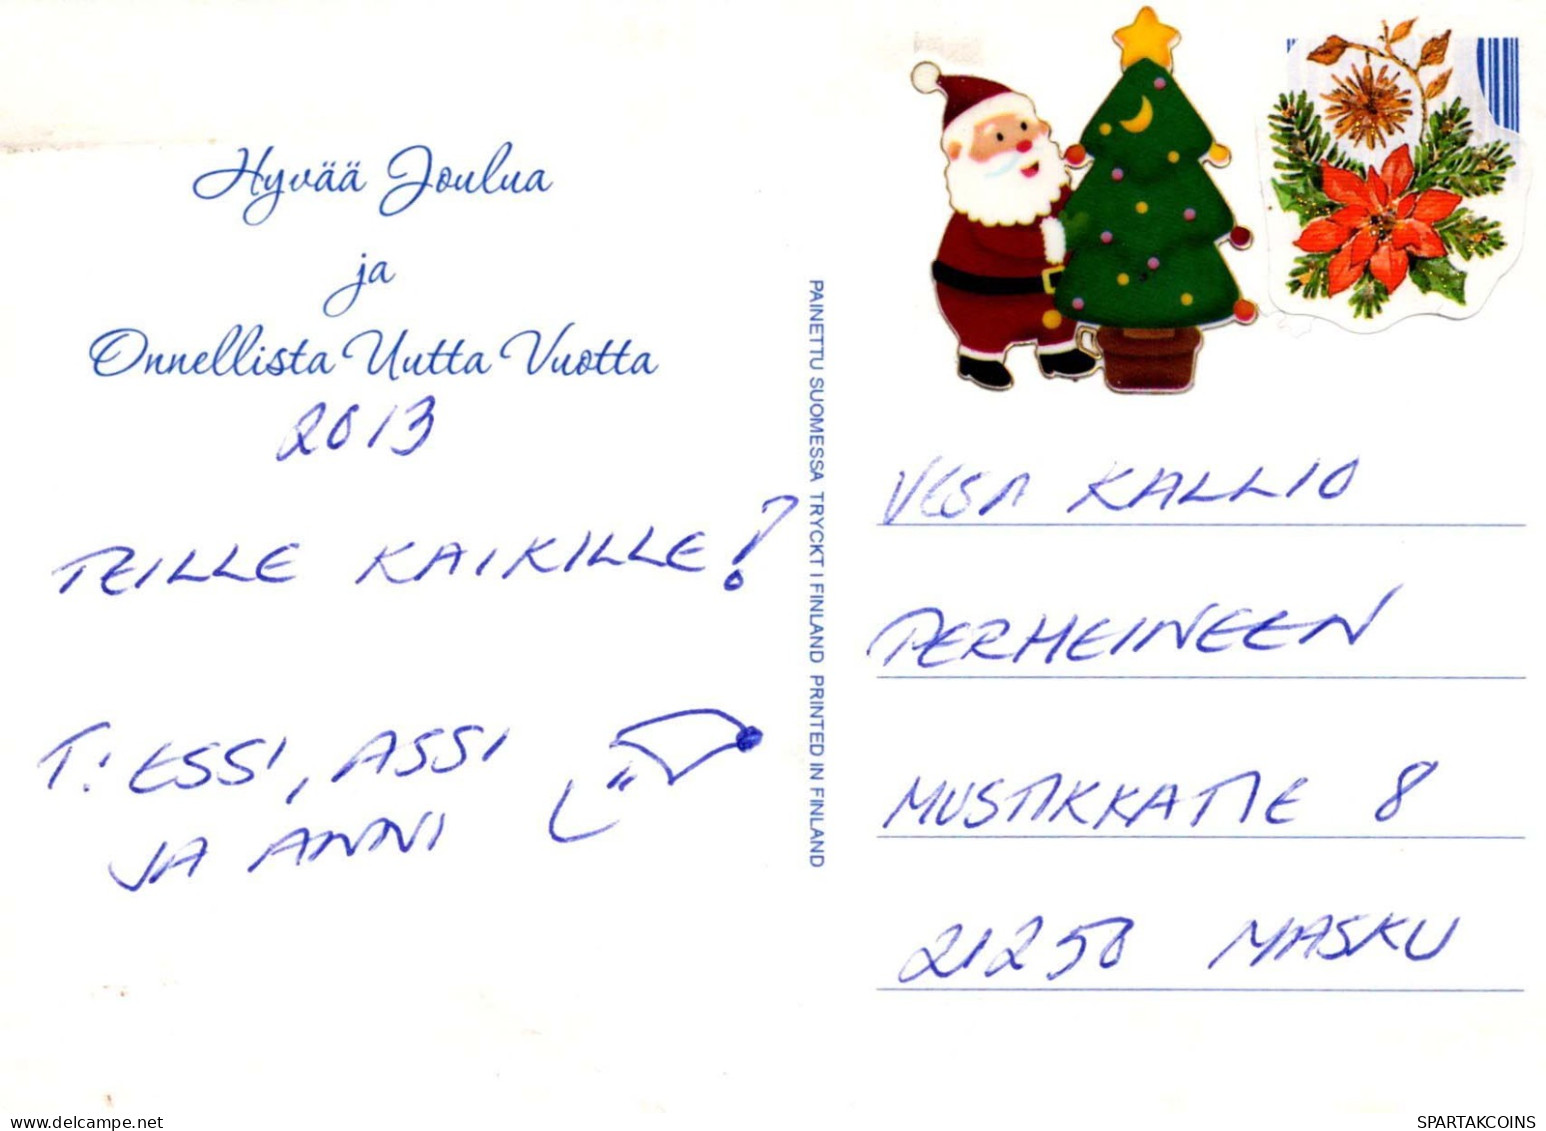 Hyvää Joulua
ja
Onnellista Uutta Vuotta
2013
TEILLE KAIKILLE!
T: ESSI, ASSI
JA ANNI
PAINETTU SUOMESSA TRYCKT I FINLAND PRINTED IN FINLAND
VESA KALLIO
PERHEINEEN
MUSTIKKATIE 8
21250 MASKU
www.delcampe.net
SPARTAKCOINS